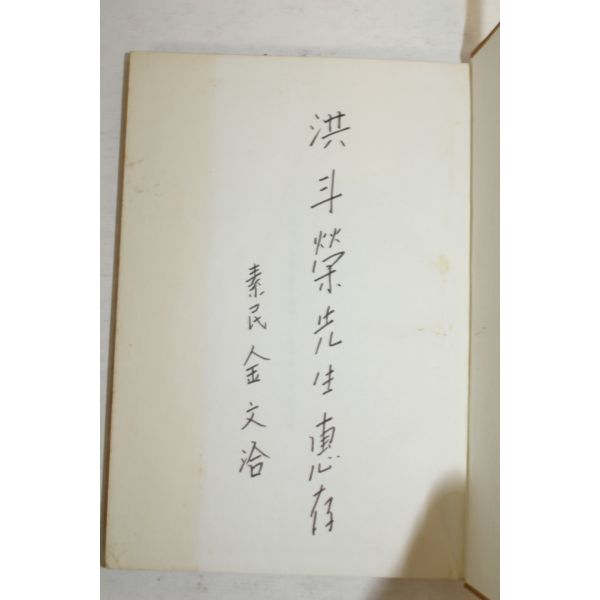 洪斗榮先生惠存
素民金文洽